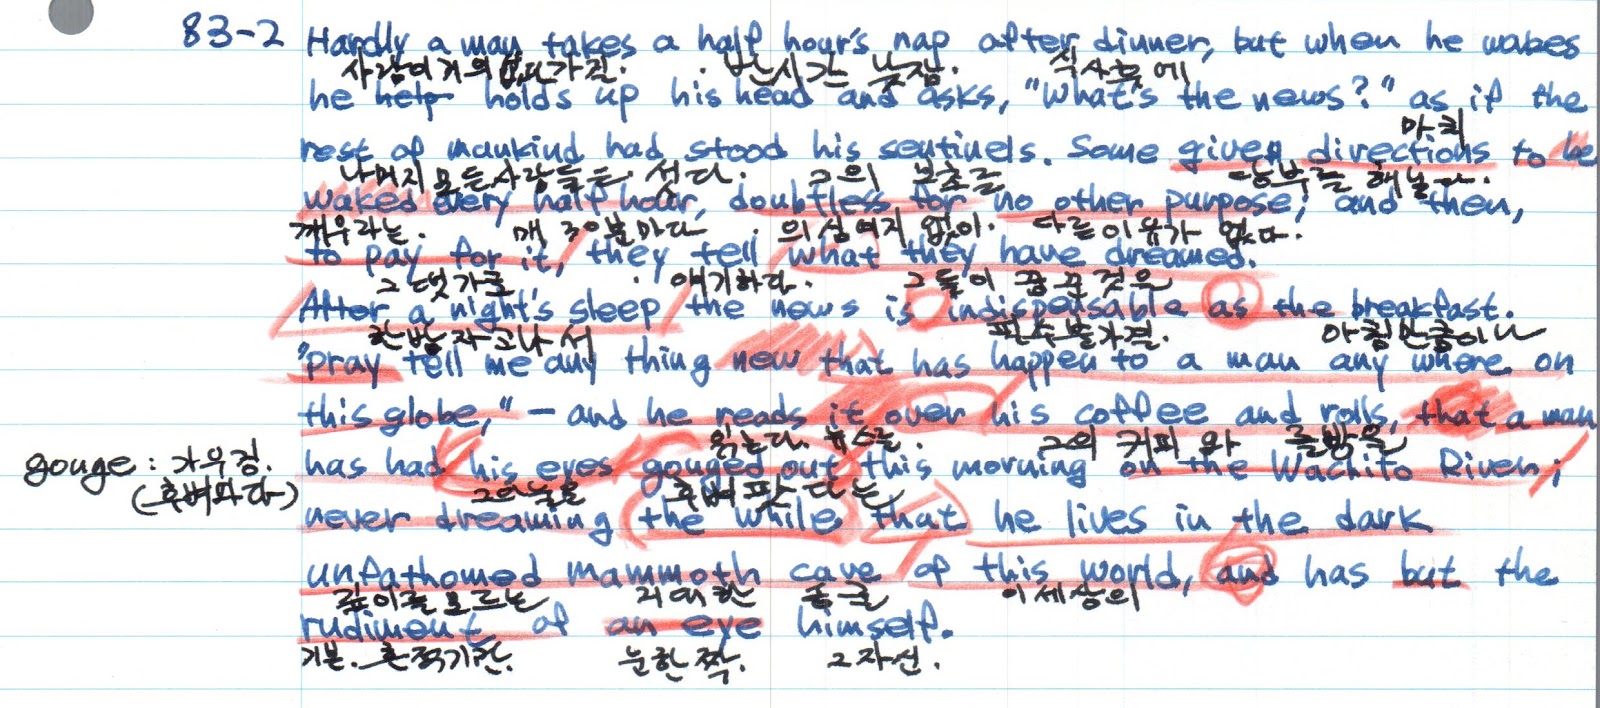 83-2 Hardly a man takes a half hour's nap after dinner, but when he wakes
사람이 거의 없다 가진. 반시간 낮잠. 식사후에
he help holds up his head and asks, "What's the news?" as if the
마치
rest of mankind had stood his sentinels. Some given directions to be
나머지 모든 사람들은 섰다. 그의 보초를 당부를 해놨다.
waked every half hour, doubtless for no other purpose; and then,
깨우라는. 매 30분마다 의심여지 없이. 다른 이유가 없다.
to pay for it, they tell what they have dreamed.
그 댓가로 얘기하다. 그들이 꿈꾼 것을
After a night's sleep the news is indispensable as the breakfast.
한밤 자고나서 필수불가결. 아침만큼이나
"pray tell me any thing new that has happen to a man any where on
this globe," - and he reads it over his coffee and rolls, that a man
읽는다. 뉴스를. 그의 커피 와 롤빵을
gouge : 가우징. has had his eyes gouged out this morning on the Wachito River;
(후벼파다) 그의 눈을 후벼팠다는
never dreaming the while that he lives in the dark
unfathomed mammoth cave of this world, and has but the
깊이를 모르는 거대한 동굴 이세상의
rudiment of an eye himself.
기본. 흔적기관. 눈한짝. 그자신.